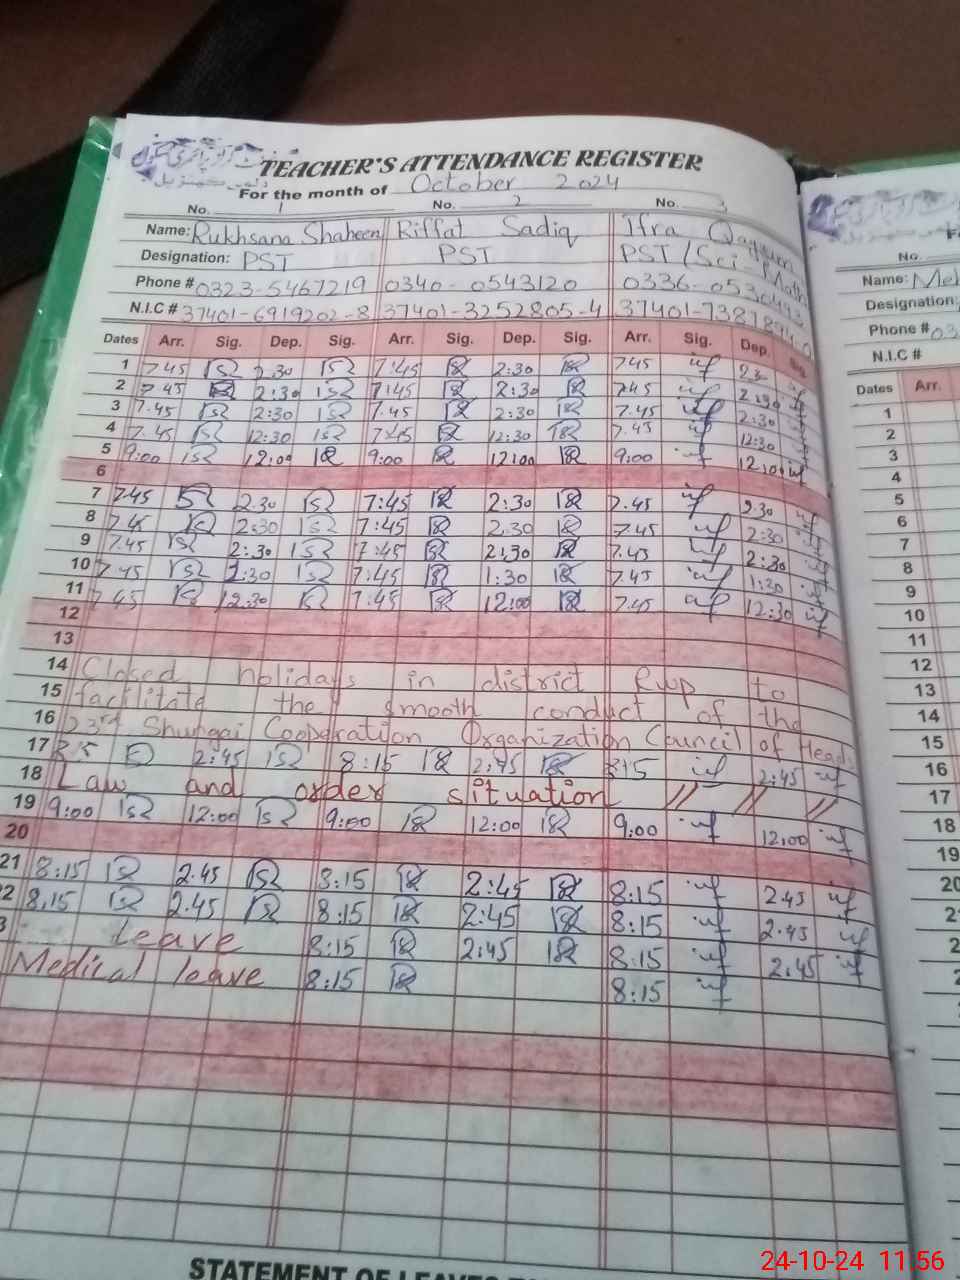 TEACHER'S ATTENDANCE REGISTER
For the month of October 2024
No. 1 No. 2 No. 3
Name: Rukhsana Shaheen Riffat Sadiq Ifra
Designation: PST PST PST/Sci-Math
Phone # 0323-5467219 0340-0543120
N.I.C # 37401-6919202-8 37401-3252805-4
Dates Arr. Sig. Dep. Sig. Arr. Sig. Dep. Sig. Arr. Sig. Dep. Sig.
1 7.45 2.30 7:45 2:30 7.45
2 7.45 2:30 7:45 2:30 7.45 2:30
3 7.45 2:30 7.45 2:30 7.45 2:30
4 7.45 12:30 7:45 12:30 7.45 12:30
5 9:00 12:00 9:00 12:00 9:00 12:00
6
7 7.45 2.30 7:45 2:30 7.45 2.30
8 7.45 2:30 7:45 2:30 7.45 2:30
9 7.45 2:30 7:45 2:30 7.45 2:30
10 7.45 1:30 7:45 1:30 7.45 1:30
11 7.45 12.30 7:45 12:00 7.45 12:30
12
13
14 Closed holidays in district Rwp to
15 facilitate the smooth conduct of the
16 23rd Shungai Cooperation Organization Council of Heads
17 2:45 8:15 2:45 8:15 2:45
18 Law and order situation // // //
19 9:00 12:00 9:00 12:00 9:00 12:00
20
21 8:15 2.45 8:15 2:45 8:15 2.45
22 8.15 2.45 8:15 2:45 8:15 2.45
leave 8:15 2.45 8:15 2.45
Medical leave 8:15 8:15
No.
Name:
Designation:
Phone # 03
N.I.C #
Dates Arr.
1
2
3
4
5
6
7
8
9
10
11
12
13
14
15
16
17
18
19
20
24-10-24 11:56